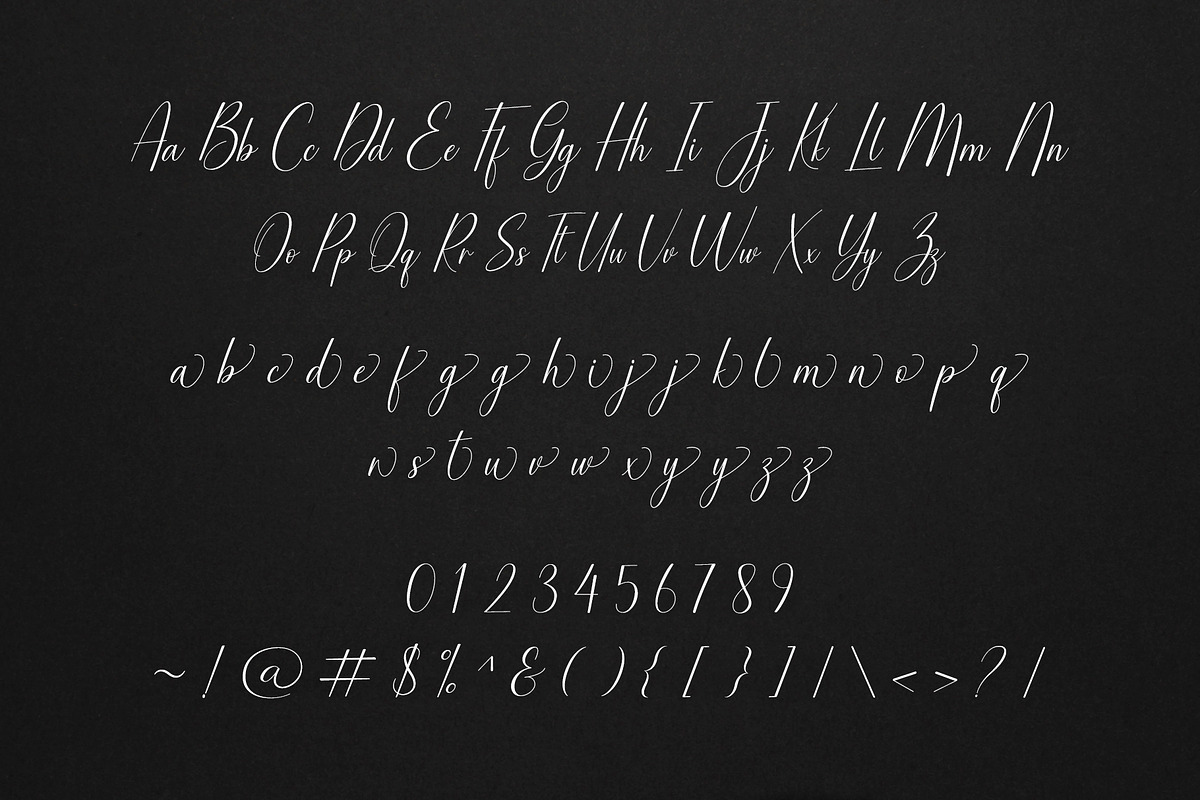 Aa Bb Cc Dd Ee Ff Gg Hh Ii Jj Kk Ll Mm Nn
Oo Pp Qq Rr Ss Tt Uu Vv Ww Xx Yy Zz
a b c d e f g g h i j j k l m n o p q
r s t u v w x y y z z
0 1 2 3 4 5 6 7 8 9
~ ! @ # $ % ^ & ( ) { [ } ] | \ < > ? /